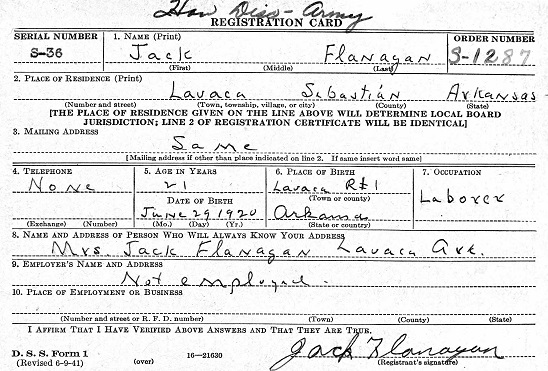 Hon Disc - Army
REGISTRATION CARD
SERIAL NUMBER 1. NAME (Print) ORDER NUMBER
S-36 Jack Flanagan S-1287
(First) (Middle) (Last)
2. PLACE OF RESIDENCE (Print)
Lavaca Sebastian Arkansas
(Number and street) (Town, township, village, or city) (County) (State)
[THE PLACE OF RESIDENCE GIVEN ON THE LINE ABOVE WILL DETERMINE LOCAL BOARD
JURISDICTION; LINE 2 OF REGISTRATION CERTIFICATE WILL BE IDENTICAL]
3. MAILING ADDRESS
Same
[Mailing address if other than place indicated on line 2. If same insert word same]
4. TELEPHONE 5. AGE IN YEARS 6. PLACE OF BIRTH 7. OCCUPATION
None 21 Lavaca Rt 1 Laborer
DATE OF BIRTH (Town or county)
June 29, 1920 Arkansas
(Exchange) (Number) (Mo.) (Day) (Yr.) (State or country)
8. NAME AND ADDRESS OF PERSON WHO WILL ALWAYS KNOW YOUR ADDRESS
Mrs. Jack Flanagan Lavaca Ark.
9. EMPLOYER'S NAME AND ADDRESS
Not employed.
10. PLACE OF EMPLOYMENT OR BUSINESS
(Number and street or R. F. D. number) (Town) (County) (State)
I AFFIRM THAT I HAVE VERIFIED ABOVE ANSWERS AND THAT THEY ARE TRUE.
D. S. S. Form 1 Jack Flanagan
(Revised 6-9-41) (over) 16—21630 (Registrant's signature)